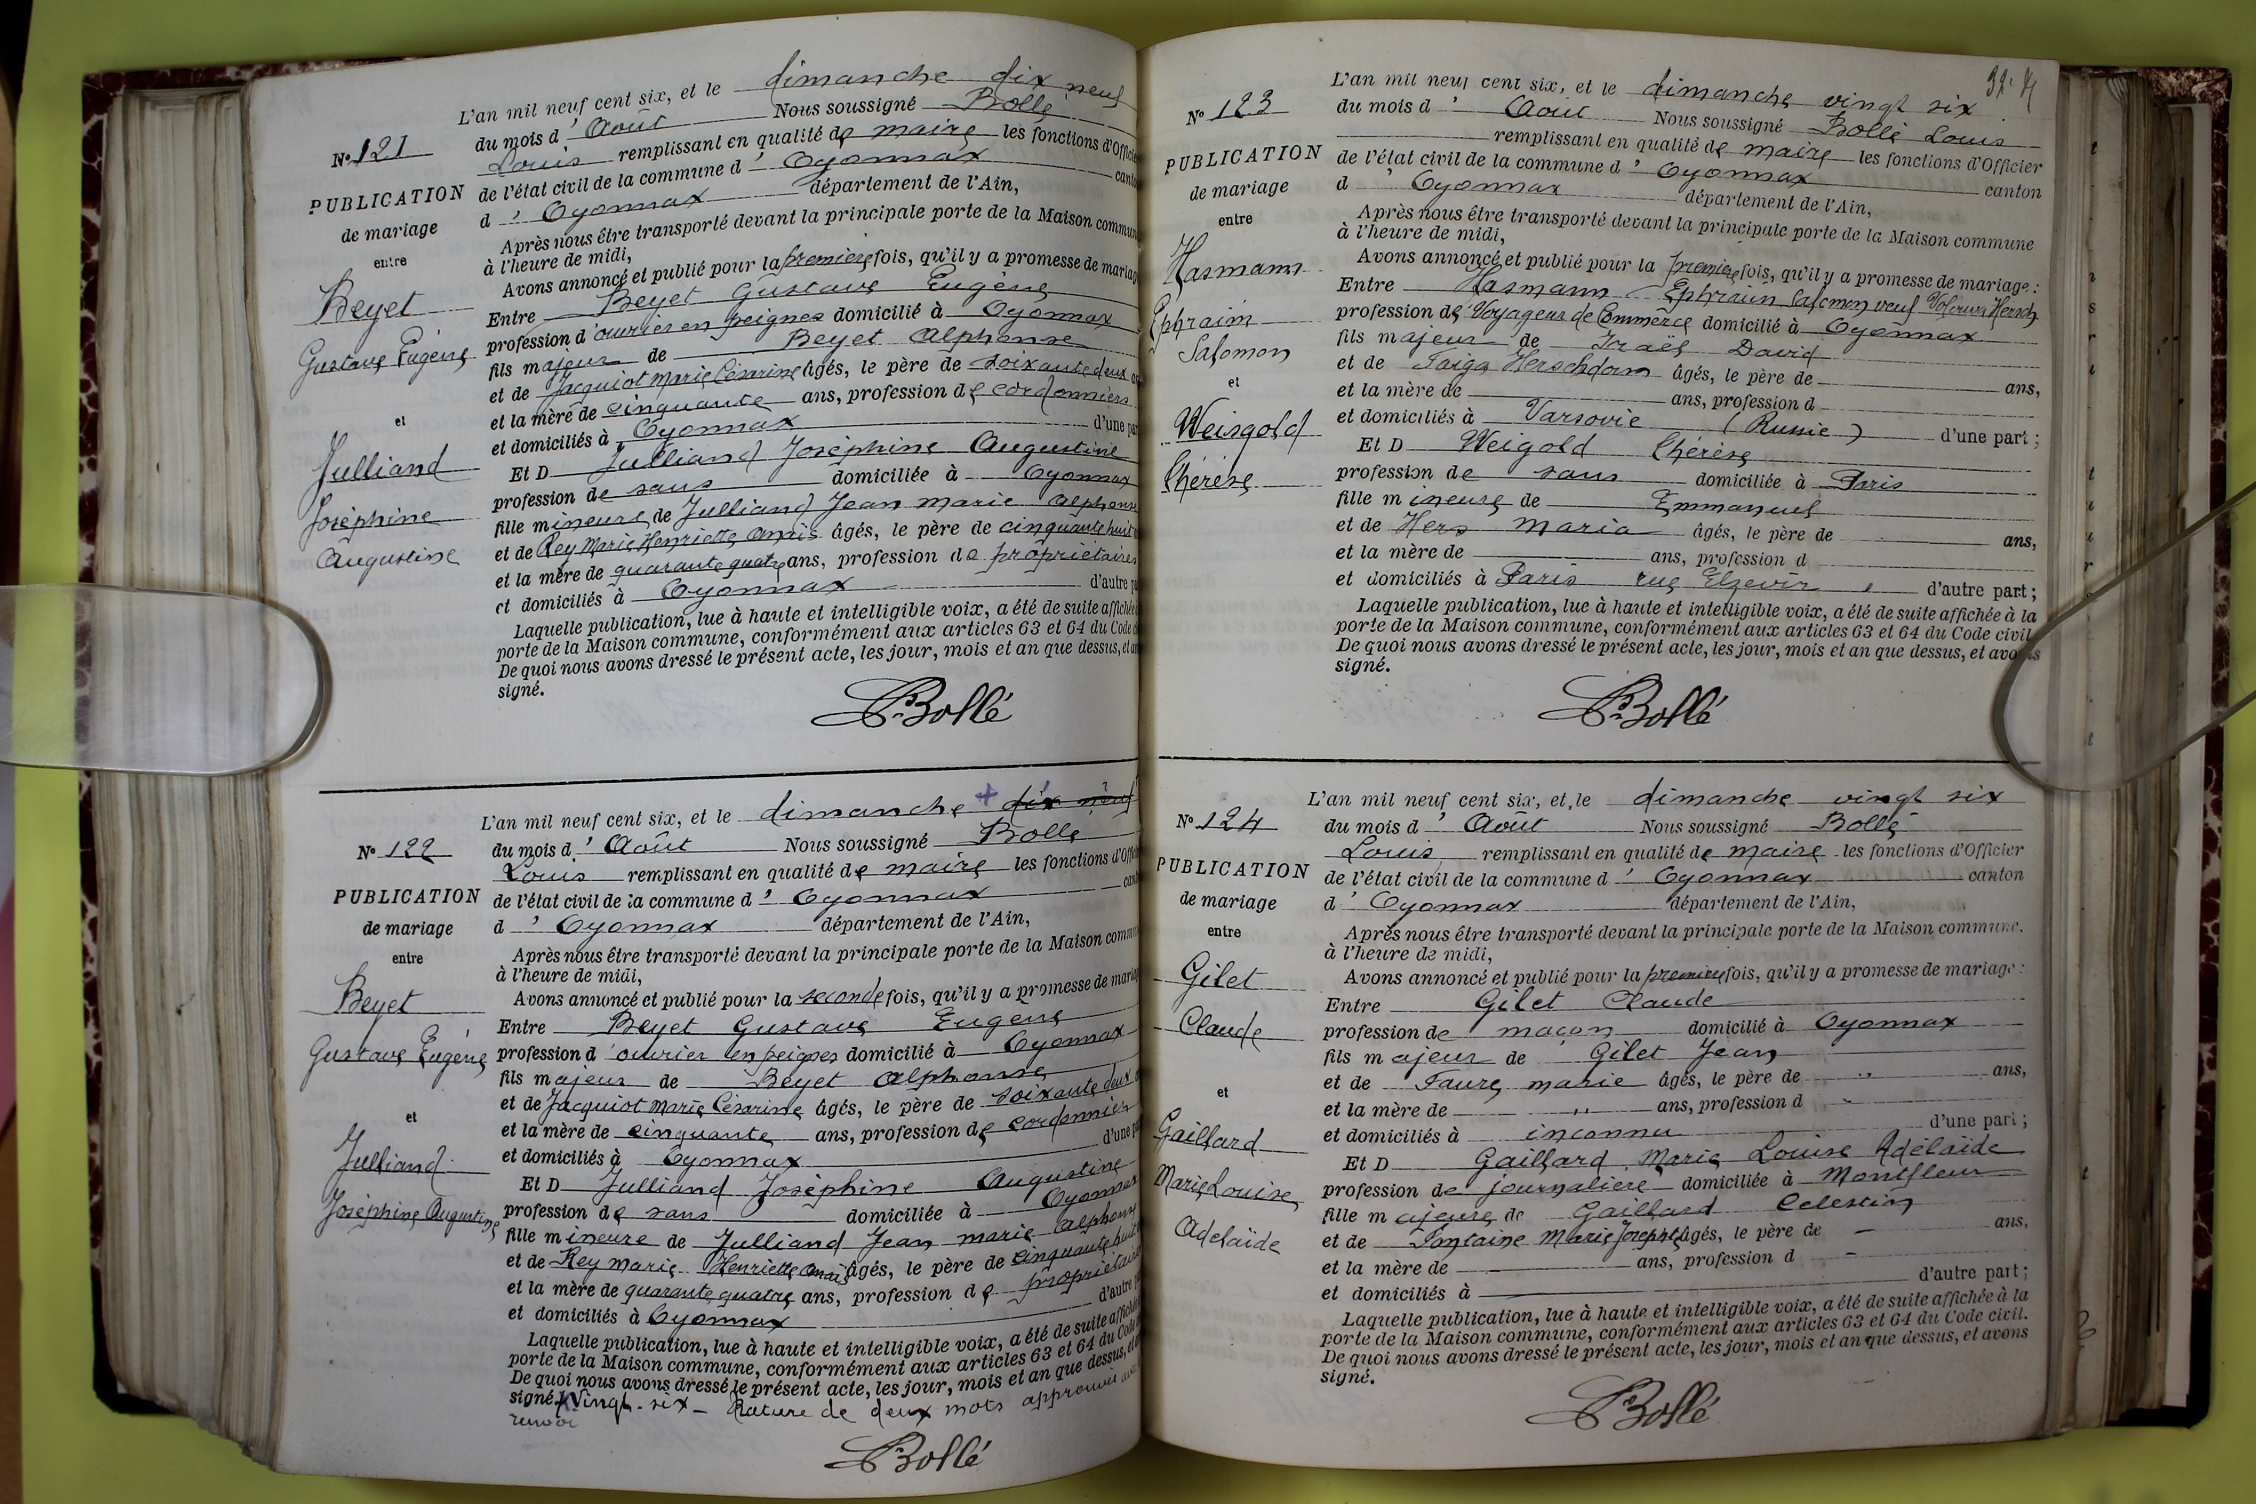 L'an mil neuf cent six, et le dimanche dix neuf
du mois d'Août Nous soussigné Bollé
Louis remplissant en qualité de maire les fonctions d'Officier
de l'état civil de la commune d'Oyonnax canton
d'Oyonnax département de l'Ain,
Après nous être transporté devant la principale porte de la Maison commune
à l'heure de midi,
Avons annoncé et publié pour la première fois, qu'il y a promesse de mariage
Entre Beyet Gustave Eugène
profession d'ouvrier en peignes domicilié à Oyonnax
fils majeur de Beyet Alphonse
et de Jacquiot Marie Césarine âgés, le père de soixante deux ans
et la mère de cinquante ans, profession de cordonniers
et domiciliés à Oyonnax d'une part
Et D Julliand Joséphine Augustine
profession de sans domiciliée à Oyonnax
fille mineure de Julliand Jean marie Alphonse
et de Rey Marie Henriette Anaïs âgés, le père de cinquante huit
et la mère de quarante quatre ans, profession de propriétaires
et domiciliés à Oyonnax d'autre part
Laquelle publication, lue à haute et intelligible voix, a été de suite affichée
porte de la Maison commune, conformément aux articles 63 et 64 du Code
De quoi nous avons dressé le présent acte, les jour, mois et an que dessus, et
signé.
Bollé
No 121
PUBLICATION
de mariage
entre
Beyet
Gustave Eugène
et
Julliand
Joséphine
Augustine
L'an mil neuf cent six, et le dimanche + dix neuf
du mois d'Août Nous soussigné Bollé
Louis remplissant en qualité de maire les fonctions d'Officier
de l'état civil de la commune d'Oyonnax canton
d'Oyonnax département de l'Ain,
Après nous être transporté devant la principale porte de la Maison commune
à l'heure de midi,
Avons annoncé et publié pour la seconde fois, qu'il y a promesse de mariage
Entre Beyet Gustave Eugène
profession d'ouvrier en peignes domicilié à Oyonnax
fils majeur de Beyet Alphonse
et de Jacquiot Marie Césarine âgés, le père de soixante deux
et la mère de cinquante ans, profession de cordonnier
et domiciliés à Oyonnax d'une part
Et D Julliand Joséphine Augustine
profession de sans domiciliée à Oyonnax
fille mineure de Julliand Jean marie Alphonse
et de Rey Marie Henriette Anaïs âgés, le père de cinquante huit
et la mère de quarante quatre ans, profession de propriétaires
et domiciliés à Oyonnax d'autre part
Laquelle publication, lue à haute et intelligible voix, a été de suite affichée
porte de la Maison commune, conformément aux articles 63 et 64 du Code
De quoi nous avons dressé le présent acte, les jour, mois et an que dessus, et
signé. + Vingt-six - Rature de deux mots approuvée
renvoi
Bollé
No 122
PUBLICATION
de mariage
entre
Beyet
Gustave Eugène
et
Julliand
Joséphine Augustine
L'an mil neuf cent six, et le dimanche vingt six
du mois d'Août Nous soussigné Bollé Louis
remplissant en qualité de maire les fonctions d'Officier
de l'état civil de la commune d'Oyonnax canton
d'Oyonnax département de l'Ain,
Après nous être transporté devant la principale porte de la Maison commune
à l'heure de midi,
Avons annoncé et publié pour la première fois, qu'il y a promesse de mariage :
Entre Hasmann Ephraïm Salomon veuf Hersch
profession de Voyageur de Commerce domicilié à Oyonnax
fils majeur de Israël David
et de Taiga Herschdorn âgés, le père de ans,
et la mère de ans, profession d
et domiciliés à Varsovie (Russie) d'une part ;
Et D Weigold Thérèse
profession de sans domiciliée à Paris
fille mineure de Emmanuel
et de Hers Maria âgés, le père de ans,
et la mère de ans, profession d
et domiciliés à Paris rue Elzevir, d'autre part ;
Laquelle publication, lue à haute et intelligible voix, a été de suite affichée à la
porte de la Maison commune, conformément aux articles 63 et 64 du Code civil.
De quoi nous avons dressé le présent acte, les jour, mois et an que dessus, et avons
signé.
Bollé
No 123
PUBLICATION
de mariage
entre
Hasmann
Ephraim
Salomon
et
Weisgold
Thérèse
L'an mil neuf cent six, et le dimanche vingt six
du mois d'Août Nous soussigné Bollé
Louis remplissant en qualité de maire les fonctions d'Officier
de l'état civil de la commune d'Oyonnax canton
d'Oyonnax département de l'Ain,
Après nous être transporté devant la principale porte de la Maison commune.
à l'heure de midi,
Avons annoncé et publié pour la première fois, qu'il y a promesse de mariage :
Entre Gilet Claude
profession de maçon domicilié à Oyonnax
fils majeur de Gilet Jean
et de Faure marie âgés, le père de " ans,
et la mère de " ans, profession d "
et domiciliés à inconnu d'une part ;
Et D Gaillard Marie Louise Adélaïde
profession de journalière domiciliée à Montfleur
fille majeure de Gaillard Celestin
et de Fontaine Marie Josephte âgés, le père de - ans,
et la mère de ans, profession d -
et domiciliés à d'autre part ;
Laquelle publication, lue à haute et intelligible voix, a été de suite affichée à la
porte de la Maison commune, conformément aux articles 63 et 64 du Code civil.
De quoi nous avons dressé le présent acte, les jour, mois et an que dessus, et avons
signé.
Bollé
No 124
PUBLICATION
de mariage
entre
Gilet
Claude
et
Gaillard
Marie Louise
Adelaïde